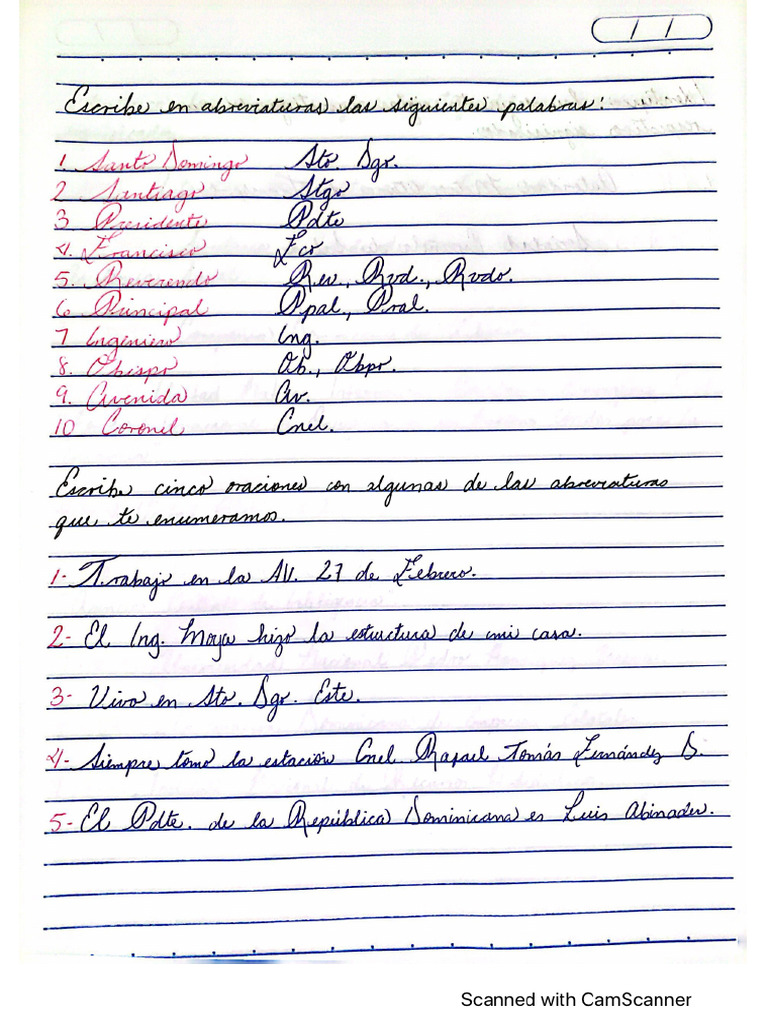 Escribe en abreviaturas las siguientes palabras:
1. Santo Domingo Sto. Dgo.
2 Santiago Stgo
3 Presidente Pdte
4. Francisco Fco
5. Reverendo Rev., Rvd., Rvdo.
6 Principal Ppal., Pral.
7 Ingeniero Ing.
8. Obispo Ob., Obpo.
9. Avenida Av.
10 Coronel Cnel.
Escribe cinco oraciones con algunas de las abreviaturas
que te enumeramos.
1- Trabajo en la AV. 27 de Febrero.
2- El Ing. Moya hizo la estructura de mi casa.
3- Vivo en Sto. Dgo. Este.
4- Siempre tomo la estación Cnel. Rafael Tomás Fernández D.
5- El Pdte. de la República Dominicana es Luis Abinader.
Scanned with CamScanner